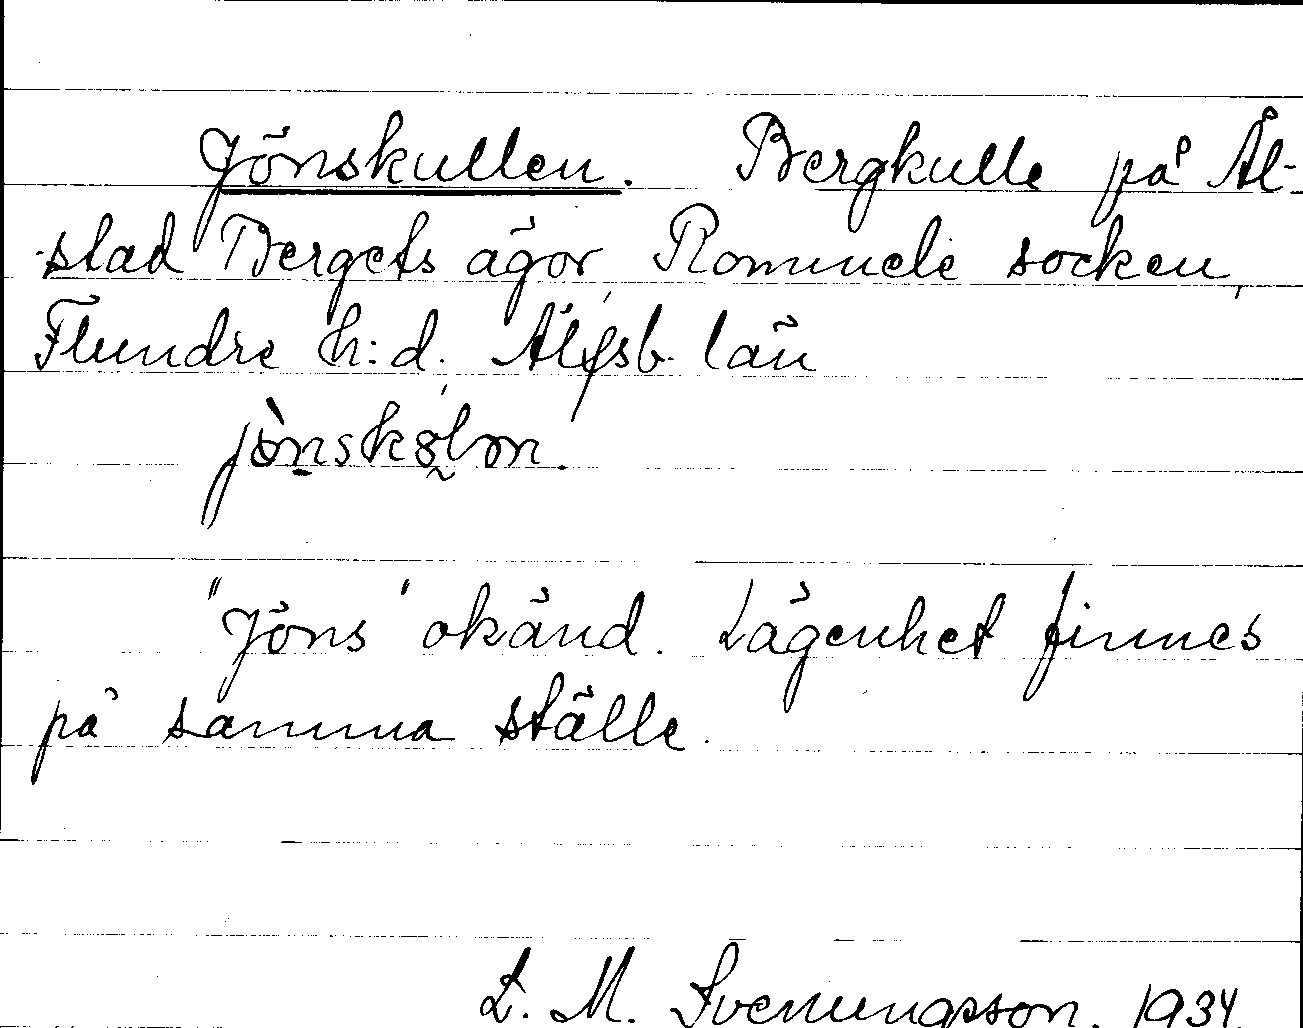 Jönskullen. Bergkulle på Ål-
stad Bergets ägor, Rommele socken,
Flundre h:d. Älfsb. län
jònskølɔn.
"Jöns" okänd. Lägenhet finnes
på samma ställe.
L. M. Svenungsson. 1934.